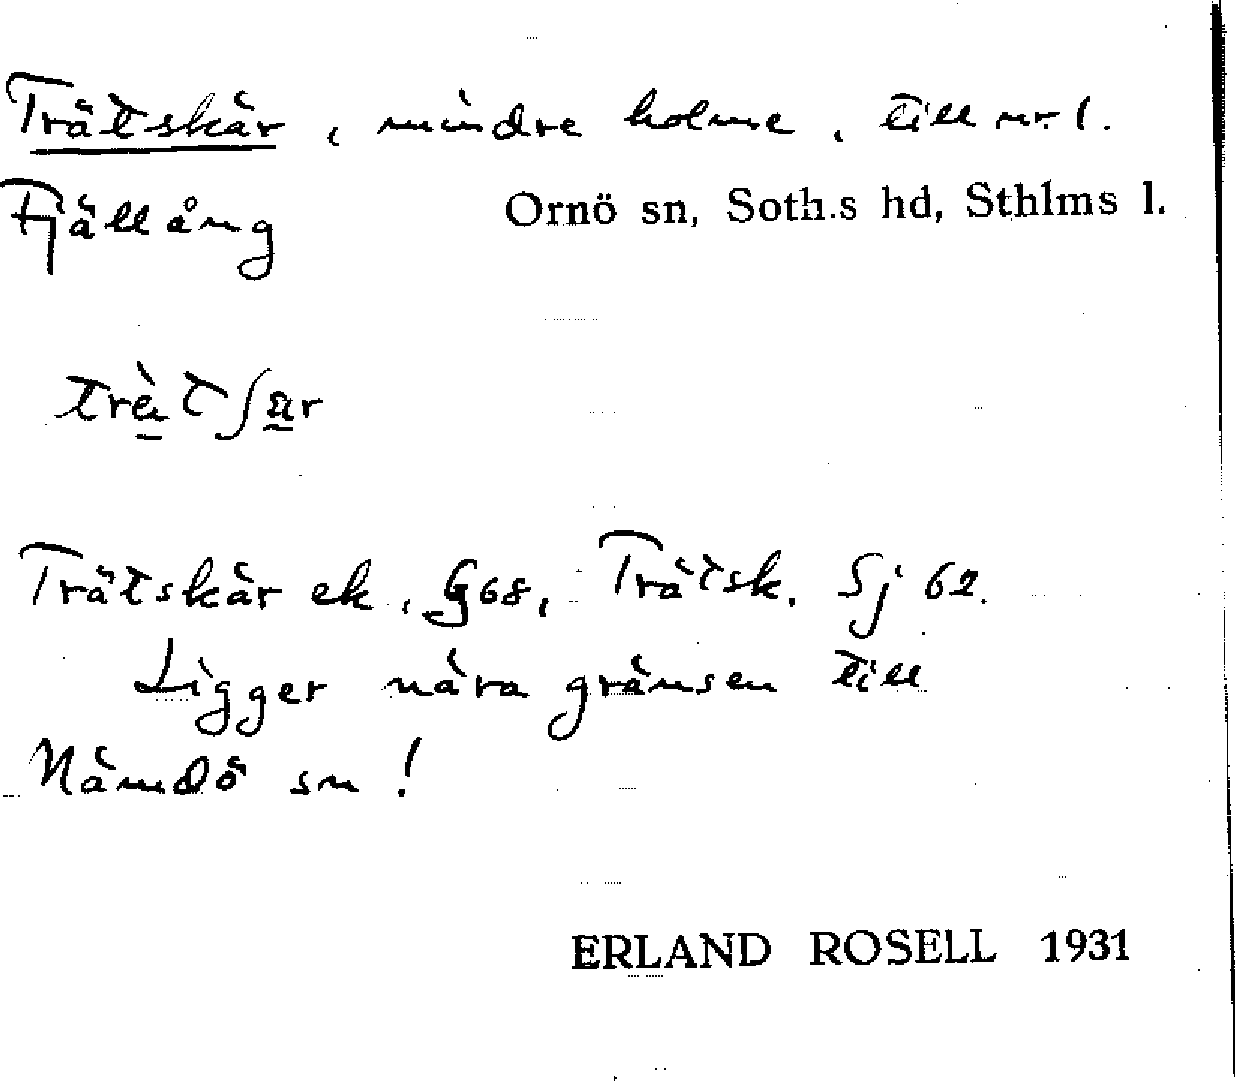 Trätskär, mindre holme, till nr. 1.
Fjällång Ornö sn, Soth.s hd, Sthlms l.
Trätskär ek, G68, Trätsk. Sj 62.
Ligger nära gränsen till
Nämdö sn!
ERLAND ROSELL 1931